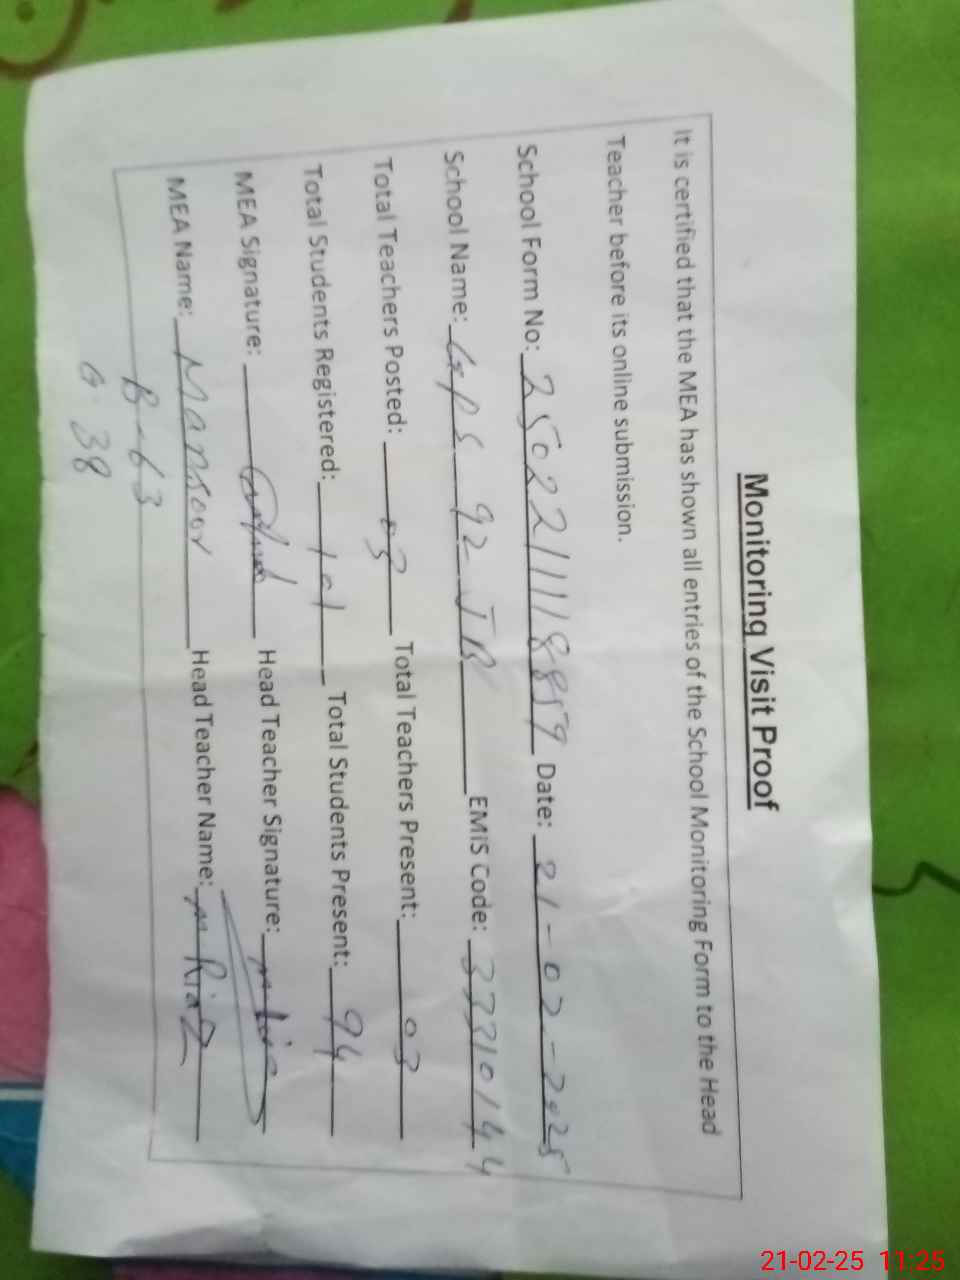 Monitoring Visit Proof
It is certified that the MEA has shown all entries of the School Monitoring Form to the Head
Teacher before its online submission.
School Form No: 250221118859 Date: 21-02-2025
School Name: Gps 92 JB EMIS Code: 33310144
Total Teachers Posted: 03 Total Teachers Present: 03
Total Students Registered: 101 Total Students Present: 94
MEA Signature: Head Teacher Signature: M Riaz
MEA Name: Mansoor Head Teacher Name: M Riaz
B-63
G 38
21-02-25 11:25